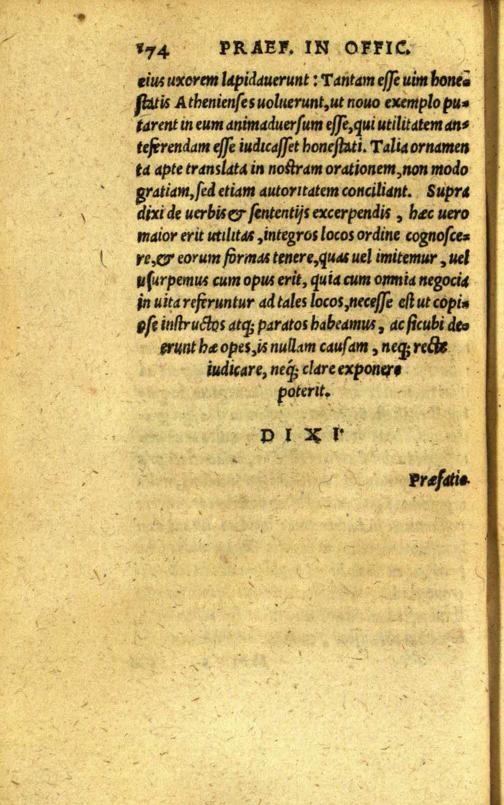 174 PRAEF. IN OFFIC.
eius uxorem lapidauerunt : Tantam eſſe uim hone⸗
ſtatis Athenienſes uoluerunt, ut nouo exemplo pu⸗
tarent in eum animaduerſum eſſe, qui utilitatem an⸗
teferendam eſſe iudicaſſet honeſtati. Talia ornamen
ta apte translata in noſtram orationem, non modo
gratiam, ſed etiam autoritatem conciliant. Supra
dixi de uerbis & ſententijs excerpendis , hæc uero
maior erit utilitas , integros locos ordine cognoſce⸗
re, & eorum formas tenere, quas uel imitemur , uel
uſurpemus cum opus erit, quia cum omnia negocia
in uita referuntur ad tales locos, neceſſe eſt ut copi⸗
oſe inſtructos atq; paratos habeamus , ac ſicubi de⸗
erunt hæ opes, is nullam cauſam , neq; recte
iudicare, neq́; clare exponere
poterit.
DIXI
Præfatio